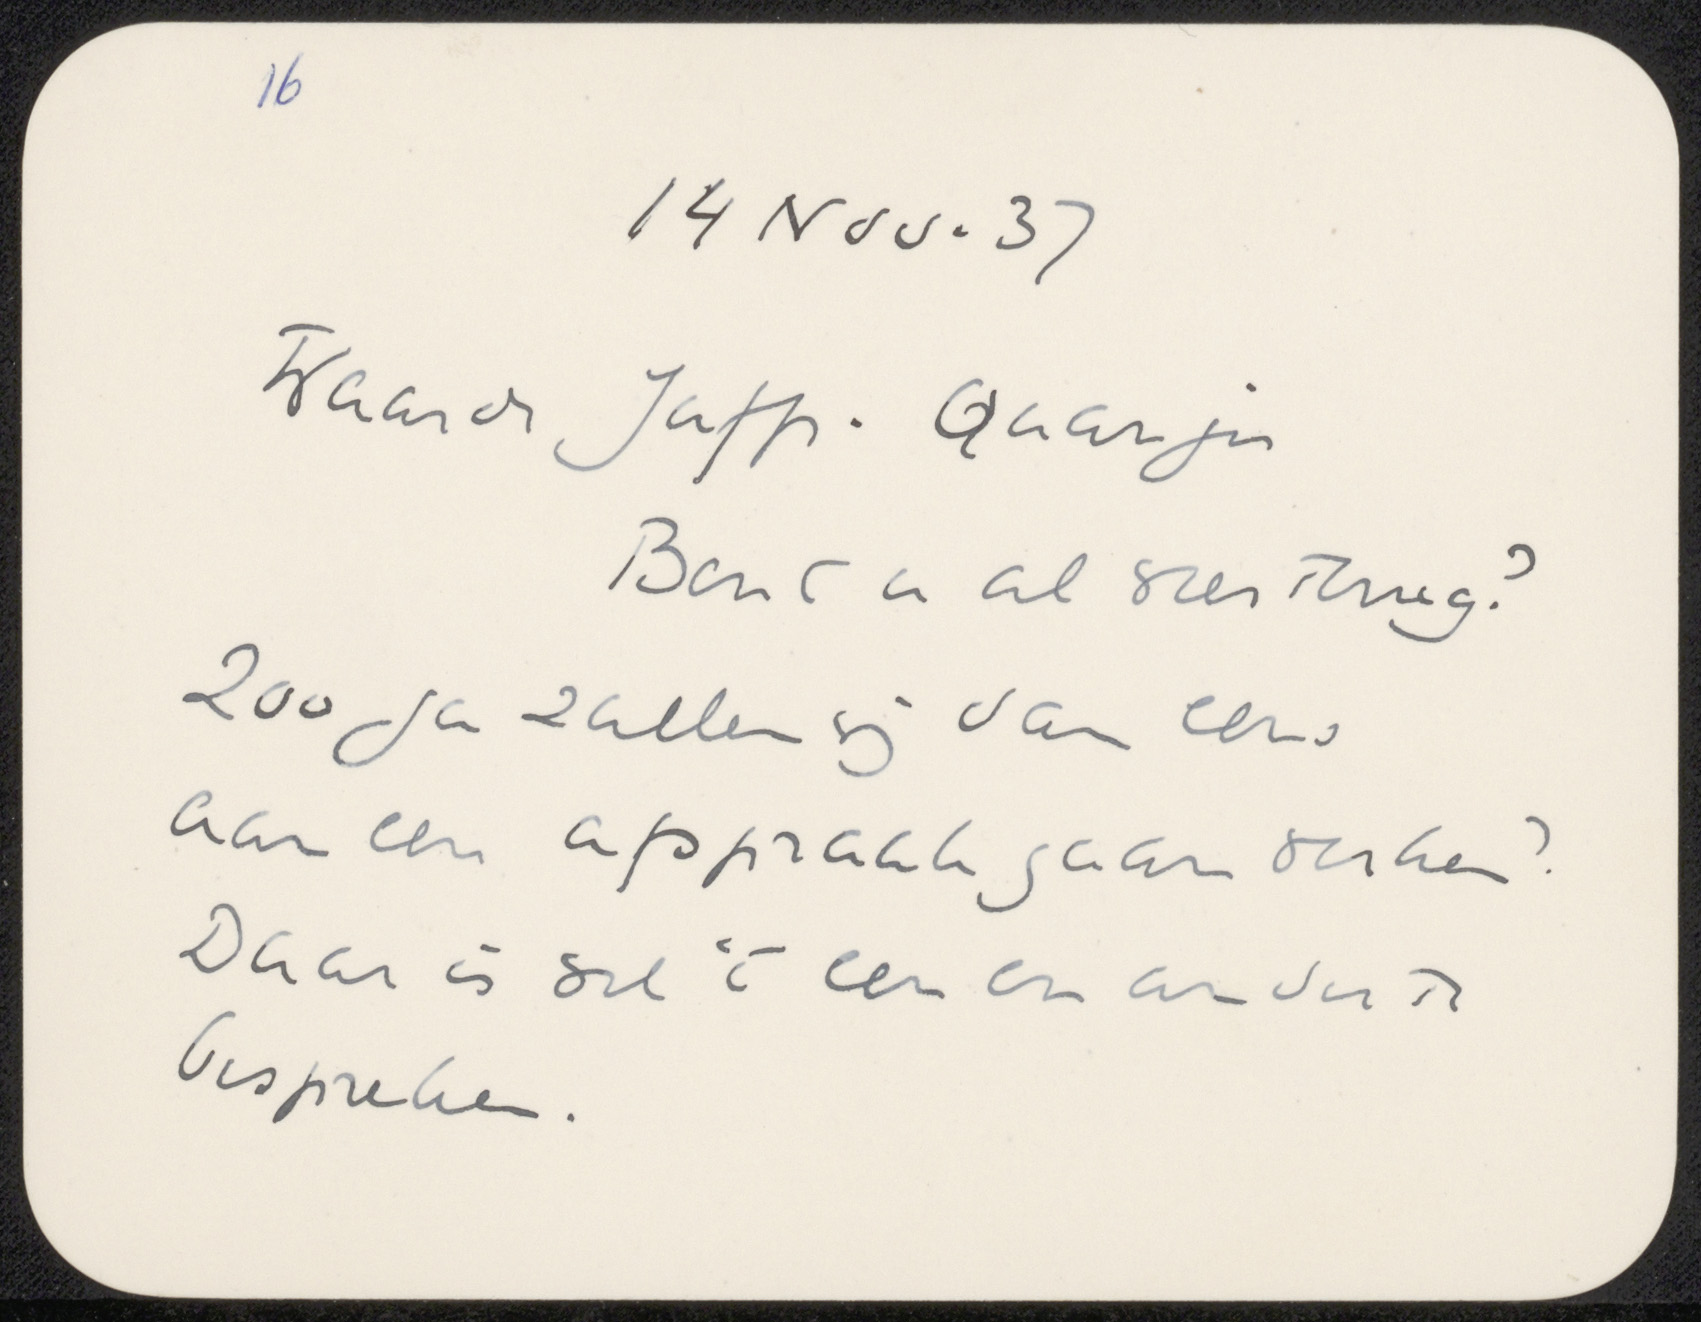 16
14 Nov. 37
Waarde Juffr. Quarijn
Bent u al weer terug?
Zoo ja zullen wij dan eens
aan een afspraak gaan werken?
Daar is wel 't een en ander te
bespreken.